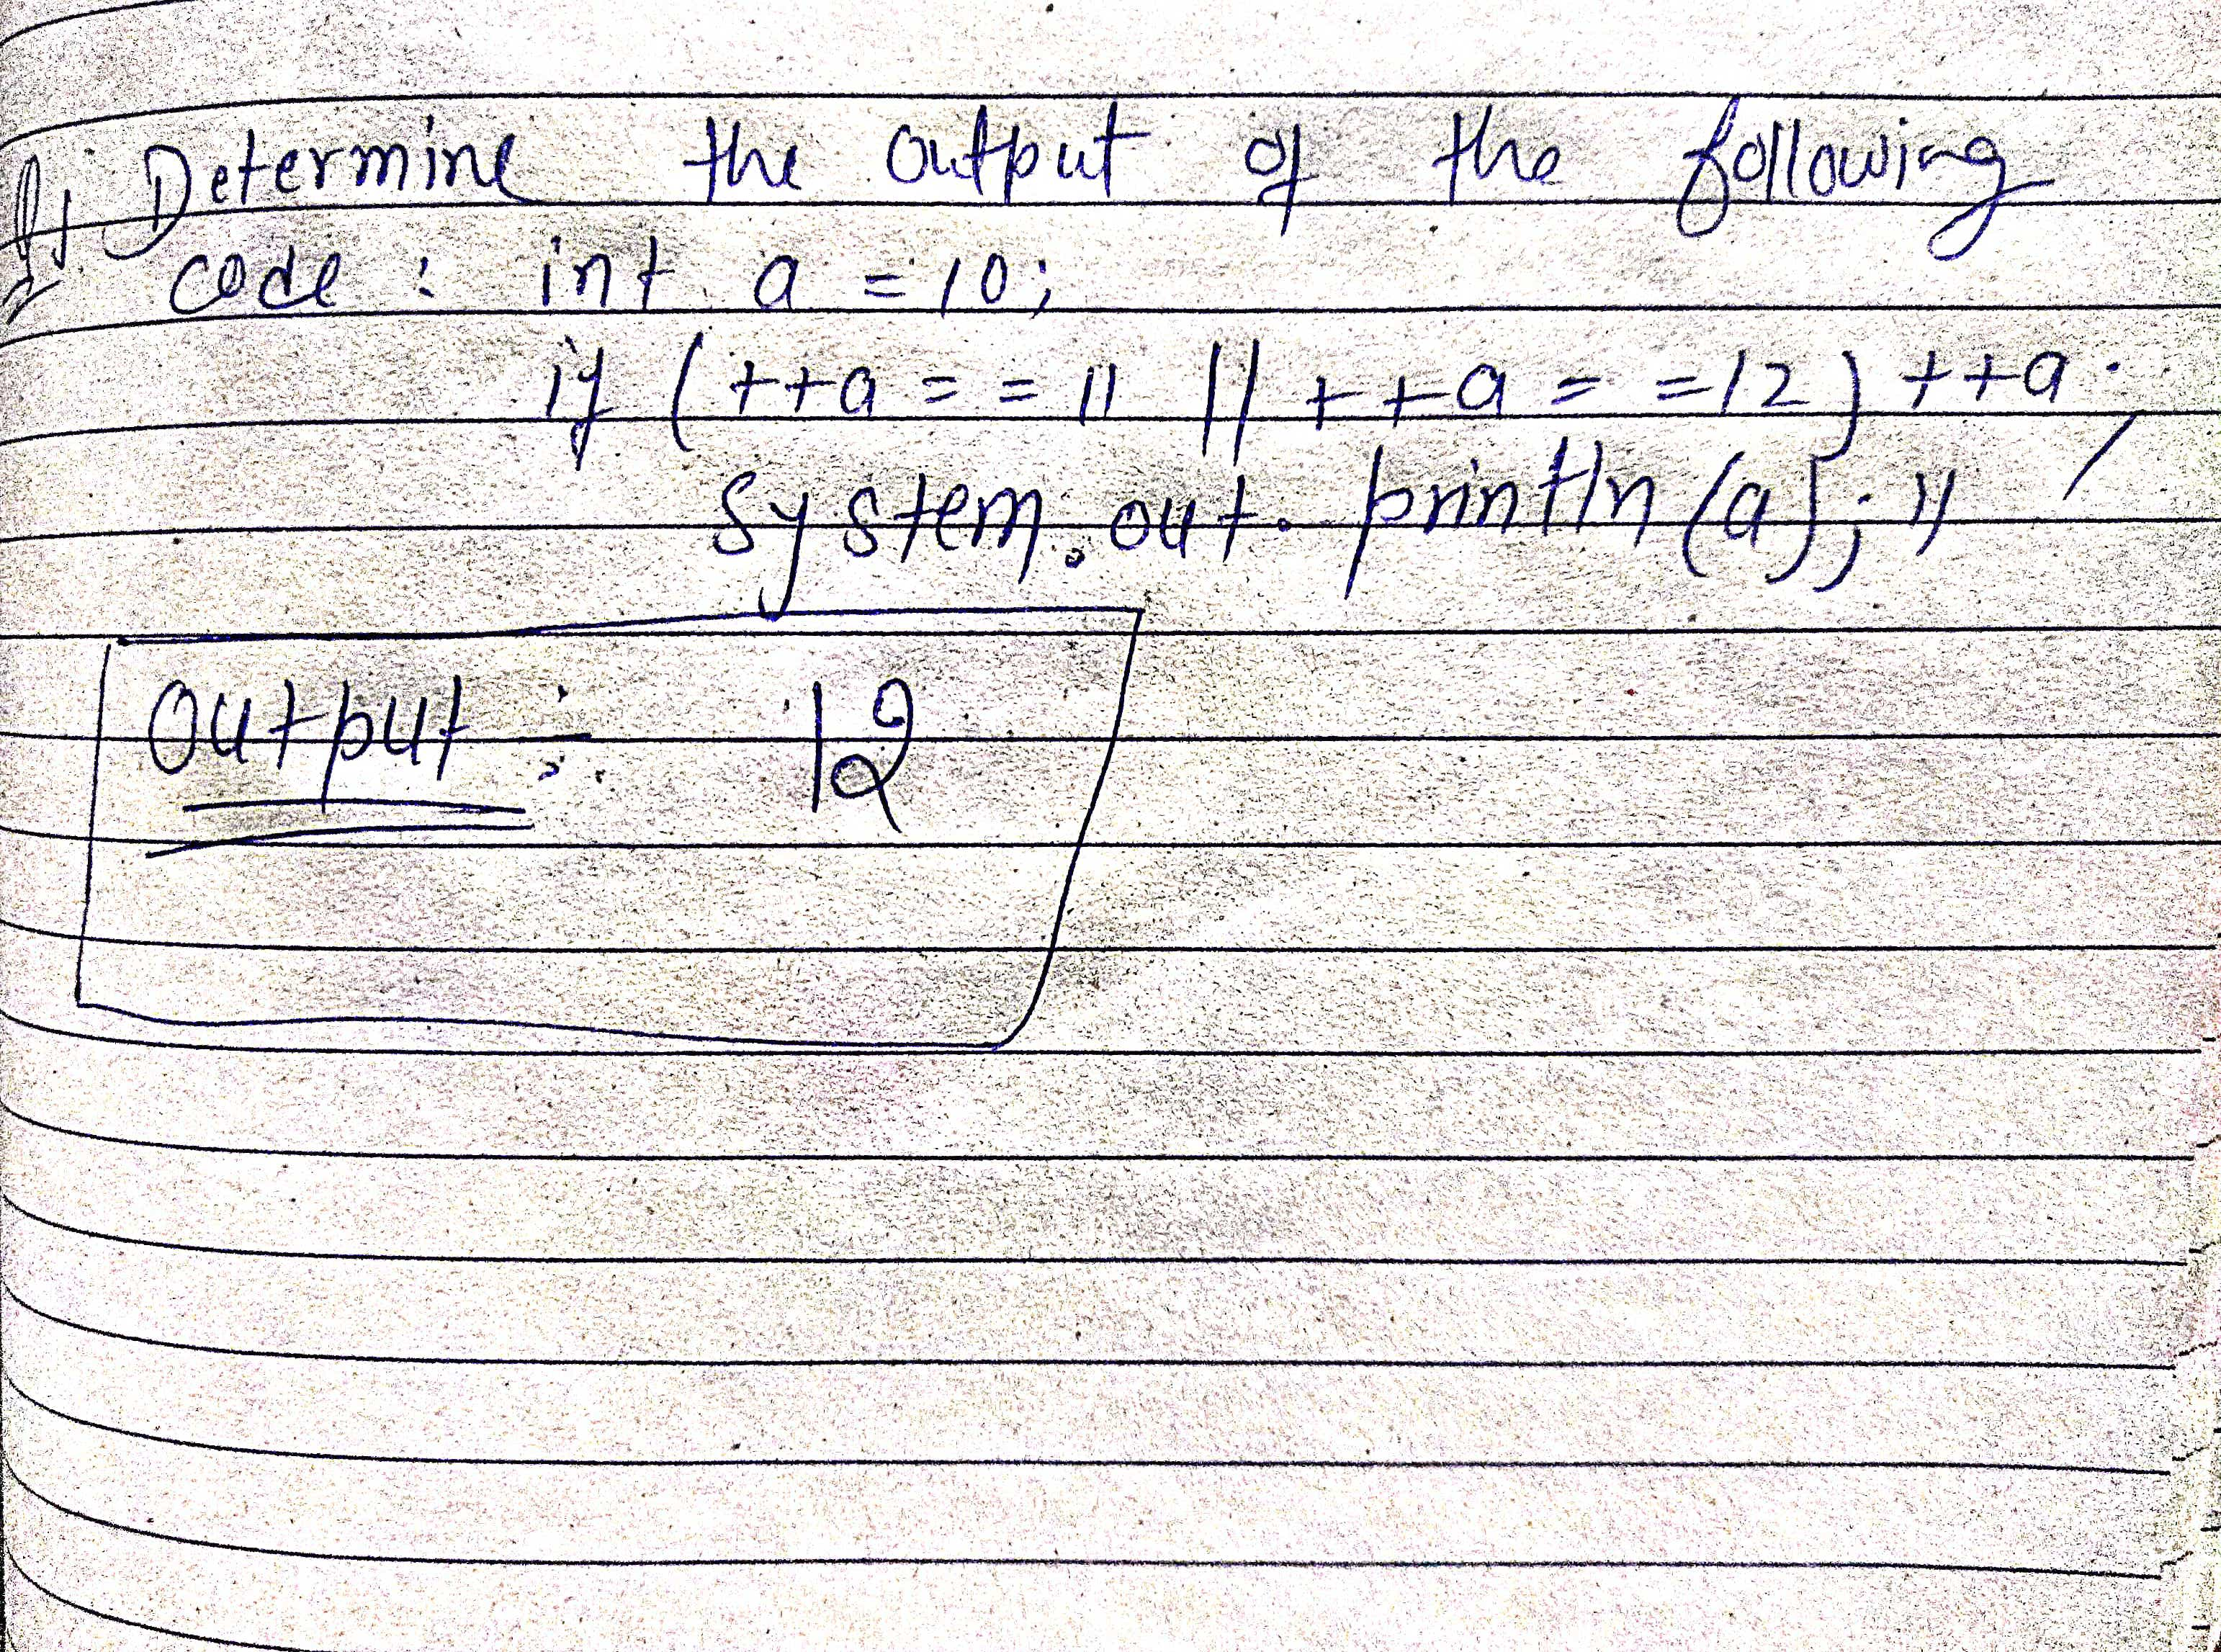 Determine the output of the following
code : int a = 10;
if (++a = = 11 || ++a = = 12) ++a;
System.out.println(a); //
Output :- 12